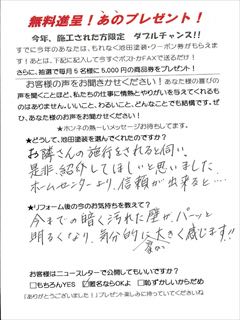 無料進呈！あのプレゼント！
今年、施工された方限定　ダブルチャンス!!
すでに今年のあなたは、もれなく池田塗装・クーポン券がもらえま
す！あとは、下記に記入して今すぐポストかFAXで送るだけ！
さらに、抽選で毎月5名様に5,000円の商品券をプレゼント！
お客様の声をお聞きかせください！あなた様の喜びの
声を聞くことほど、私たちの仕事に情熱とやりがいを与えてくれるも
のはありません。いいこと、わるいこと、どんなことでも結構です。ぜ
ひ、あなた様のお声をお聞かせください！
★ホンネの熱～いメッセージお待ちしてます。
★どうして、池田塗装を選んでくれたのですか？
お隣さんの施行をされると伺い、
是非紹介してほしいと思いました。
ホームセンターより、信頼が出来ると…
★リフォーム後の今のお気持ちを教えて？
今までの暗く汚れた壁が、パーッと
明るくなり、気分的に大きく感じます!!
家が
お客様はニュースレターで公開してもいいですか？
□もちろんYES　☑匿名ならOKよ　□恥ずかしいからだめ
「ありがとうございました！」プレゼント楽しみに持っていてくださいね